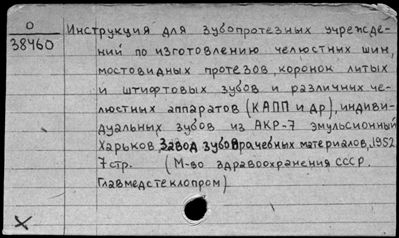 О
38460
Инструкция для зубопротезных учрежде-
ний по изготовлению челюстных шин,
мостовидных протезов, коронок литых
и штифтовых зубов и различных че-
люстных аппаратов (КАПП и др), индиви-
дуальных зубов из АКР-7 эмульсионный
Харьков, Завод зубоврачебных материалов, 1952
7 стр. (М-во здравоохранения СССР.
Главмедстеклопром)
X